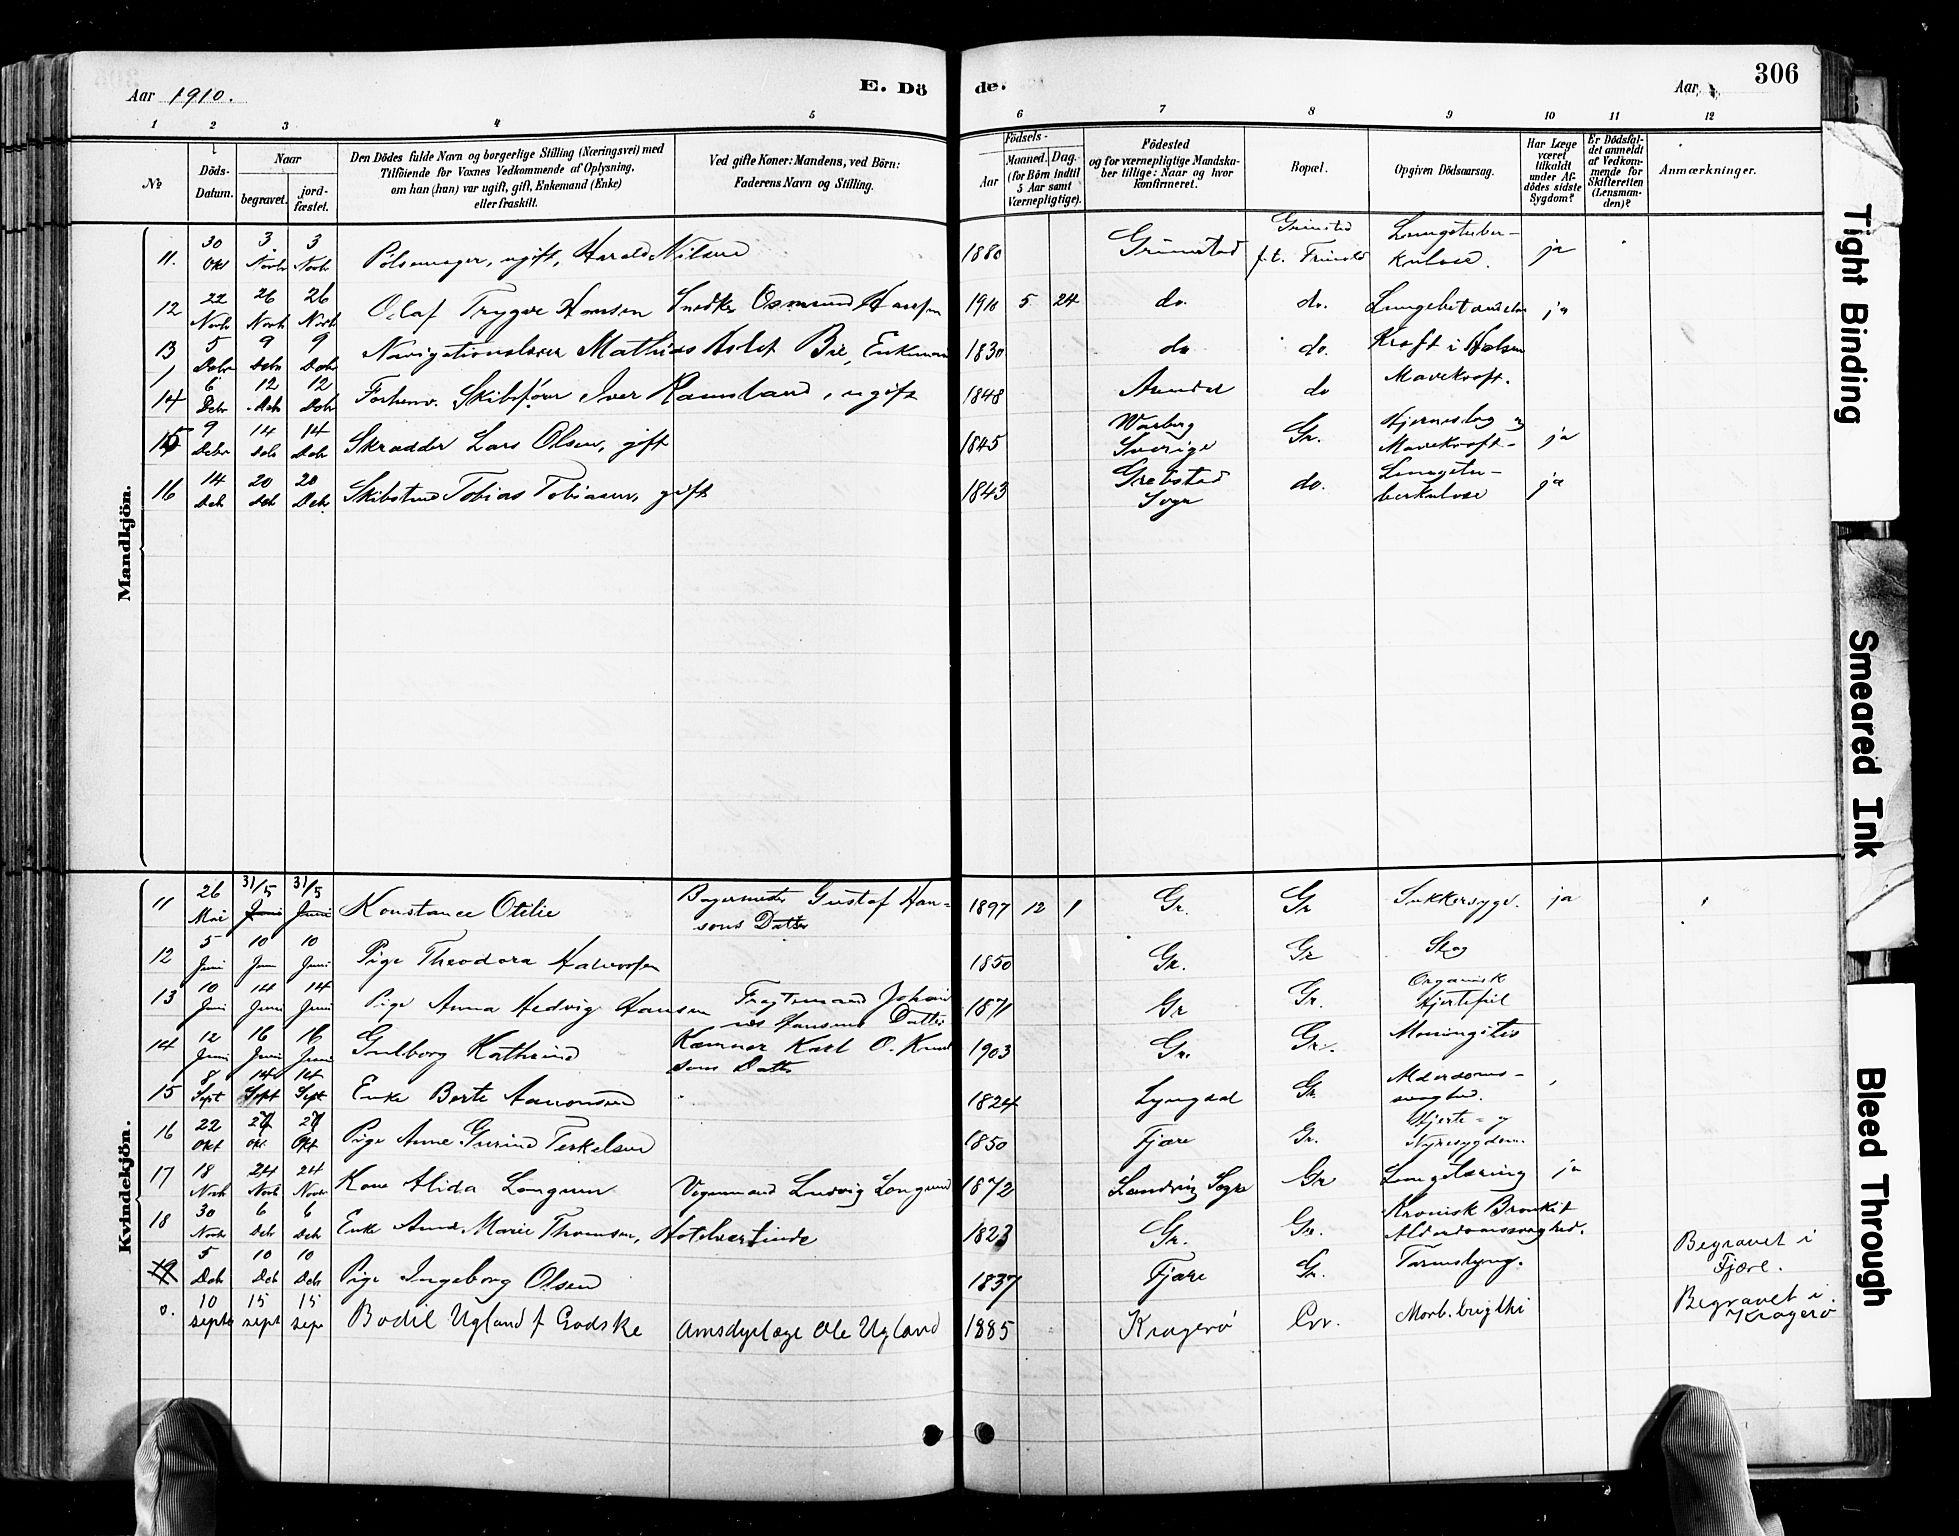 306
Aar 1910.
E. Dö de.
Aar
1 2 3 4 5 6 7 8 9 10 11 12
No
Döds-Datum.
Naar
begravet.
jord-fæstet.
Den Dödes fulde Navn og borgerlige Stilling (Næringsvei) med
Tilföiende for Voxnes Vedkommende af Oplysning,
om han (hun) var ugift, gift, Enkemand (Enke)
eller fraskilt.
Ved gifte Koner: Mandens, ved Börn:
Faderens Navn og Stilling.
Födsels-
Aar
Maaned. Dag.
(for Börn indtil
5 Aar samt
Værnepligtige).
Födested
og for værnepligtige Mandska-
ber tillige: Naar og hvor
konfirmeret.
Bopæl.
Opgiven Dödsaarsag.
Har Læge
været
tilkaldt
under Af-
dödes sidste
Sygdom?
Er Dödsfal-
det anmeldt
af Vedkom-
mende for
Skifteretten
(Lensman-
den)?
Anmærkninger.
Mandkjön.
11. 30 Okt 3. Novbr 3 Novbr Pølsemager, ugift, Harald Nilsen 1880 Grimstad Grimstad f.t. Lungetuber-kulose. ja
12 22 Novb 26 Novb 26 Novb Olaf Trygve Hansen Snedker Osmund Hansen 1910 5 24 do. do. Lungebetændelse ja
13 5 Debr 9 Debr 9 Debr Navigationslærer Mathias Aslef Bie, Enkemand 1830 do do. Kræft i Halsen
14 6 Debr 12 Deb 12 Debr Forhenv. Skibsfører Iver Ramsland, ugift 1848 Arendal do Mavekræft.
15 9 Debr 14 Deb 14 Deb Skrædder Lars Olsen, gift 1845 Warberg Sverige Gr. Hjerneslag og Mavekræft- ja
16 14 Deb 20 Deb 20 Deb. Tobias Tobiasen, gift 1843 Grebstad Sogn do. Lungetu-berkulose ja
Kvindekjön.
11 26 Mai 31/5 Juni 31/5 Juni Konstance Otilie Bagermester Gustaf Han-sens Datter 1897 12 1 Gr. Gr Sukkersyge. ja
12 5 Juni 10 Juni 10 Juni Pige Theodora Halvorsen 1850 Gr. Gr Slag
13 10 Juni 14 Juni 14 Juni Pige Anna Hedvig Hansen Fragtemand Johan-nes Hansens Datter 1871 Gr Gr. Organisk Hjertefeil
14 12 Juni 16 Juni 16 Juni Gulborg Kathrine Kæmner Karl O. Knud-sens Datter 1903 Gr. Gr. Meningitis
15 8 Sept 14 Sept 14 Sept Enke Berte Aanonsen 1824 Lyngdal Gr. Alderdoms-svaghed.
16 22 Okt 27 Okt 27 Okt Pige Anne Gurine Terkelsen 1850 Fjære Gr. Hjerte- og Nyresygdom.
17 18 Novb 24 Novb 24 Novbr Kone Alida Longum Vognmand Ludvig Longum 1872 Landvig Sogn Gr Lungetæring ja
18 30 Novbr 6 Deb 6 Deb Enke Anne Marie Thomsen, Hotelværtinde 1823 Gr. Gr. Kronisk Bronkit Alderdomssvaghed.
19 5 Deb 10 Deb 10 Deb Pige Ingeborg Olsen 1837 Fjære Gr. Tarmslyng. Begravet i Fjære.
0. 10 septb 15 sept 15 sept Bodil Ugland f. Godske Amsdyrlæge Ole Ugland 1885 Kragerø Gr. Morb. brigthi Begravet i Kragerø
Tight Binding
Smeared Ink
Bleed Through